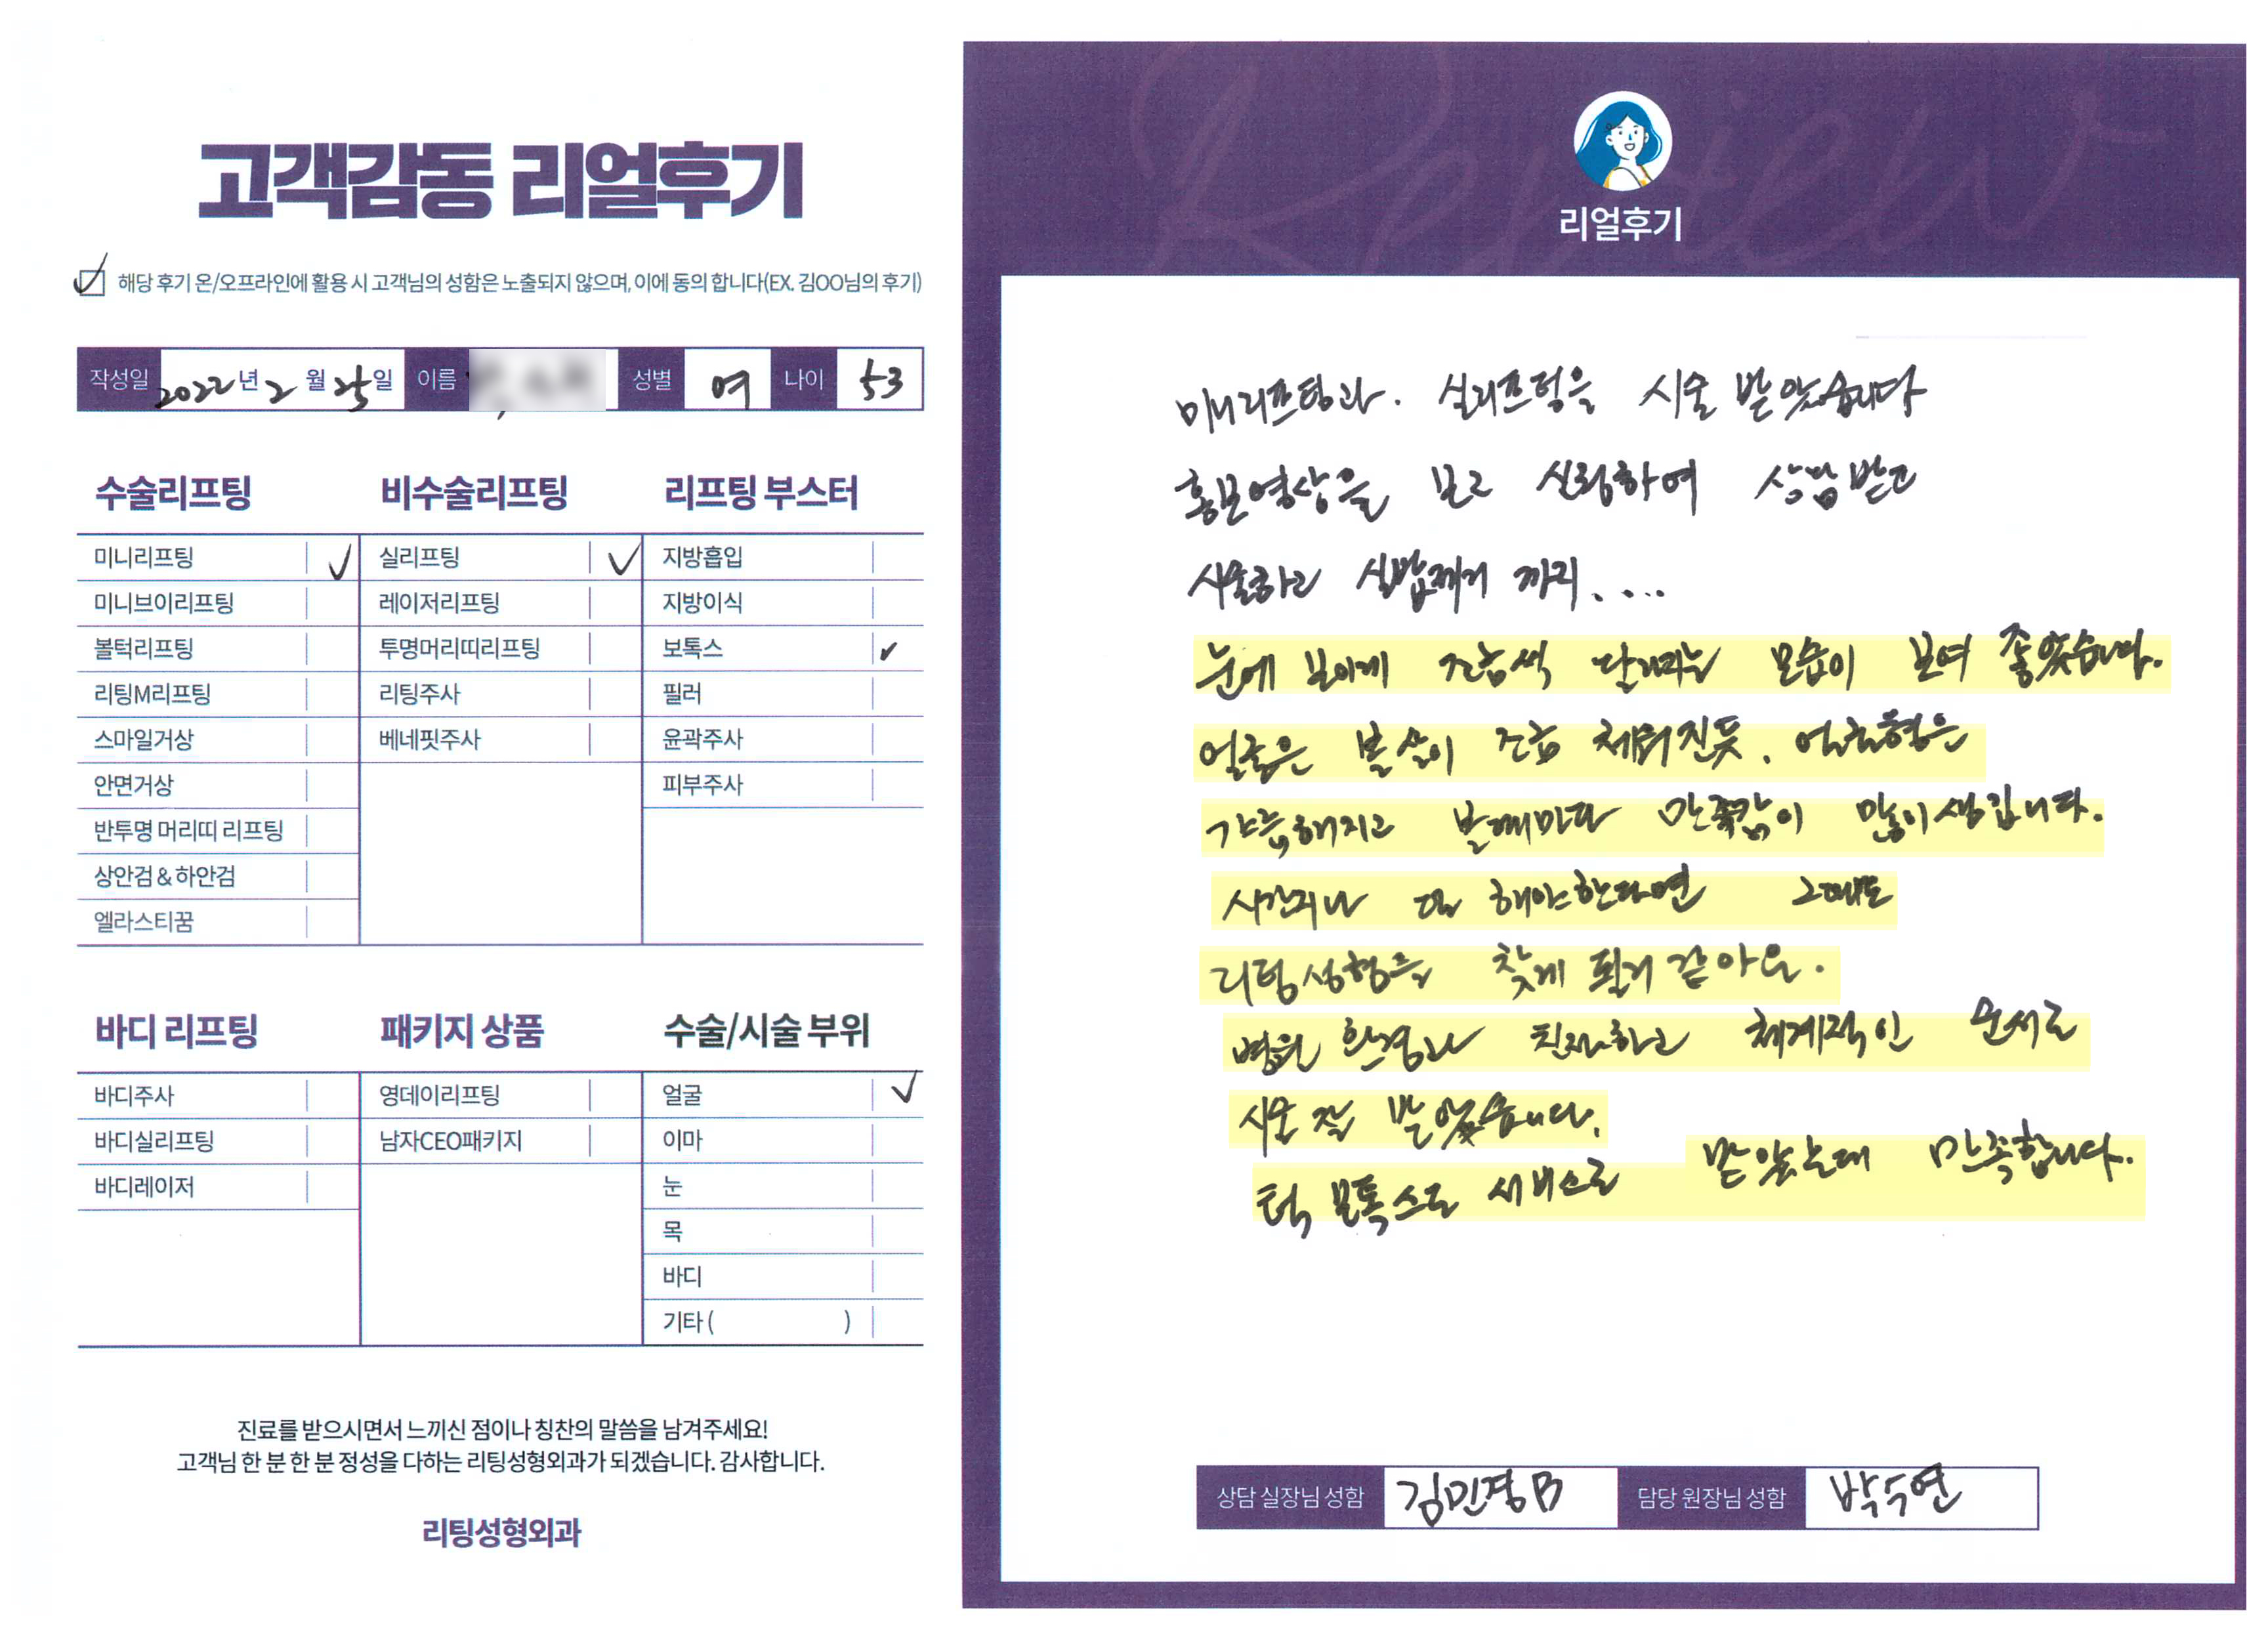 고객감동 리얼후기
해당 후기 온/오프라인에 활용 시 고객님의 성함은 노출되지 않으며, 이에 동의 합니다(EX. 김OO님의 후기)
작성일 2022년 2월 25일 이름 성별 여 나이 53
수술리프팅
미니리프팅
미니브이리프팅
볼턱리프팅
리팅M리프팅
스마일거상
안면거상
반투명 머리띠 리프팅
상안검 & 하안검
엘라스티꿈
비수술리프팅
실리프팅
레이저리프팅
투명머리띠리프팅
리팅주사
베네핏주사
리프팅 부스터
지방흡입
지방이식
보톡스
필러
윤곽주사
피부주사
바디 리프팅
바디주사
바디실리프팅
바디레이저
패키지 상품
영데이리프팅
남자CEO패키지
수술/시술 부위
얼굴
이마
눈
목
바디
기타 ( )
진료를 받으시면서 느끼신 점이나 칭찬의 말씀을 남겨주세요!
고객님 한 분 한 분 정성을 다하는 리팅성형외과가 되겠습니다. 감사합니다.
리팅성형외과
Review
리얼후기
미니리프팅과. 실리프팅을 시술 받았습니다
홍보영상을 보고 신뢰하여 상담받고
시술하고 실밥제거 까지....
눈에 보이게 조금씩 달라지는 모습이 보여 좋았습니다.
얼굴은 볼살이 조금 채워진듯. 얼굴형은
갸름해지고 볼때마다 만족감이 많이생깁니다.
시간지나 또 해야한다면 그때도
리팅성형을 찾게 될거 같아요.
병원 환경과 친절하고 체계적인 순서로
시술 잘 받았습니다.
턱 보톡스도 서비스로 받았는데 만족합니다.
상담 실장님 성함 김민경B 담당 원장님 성함 박수연